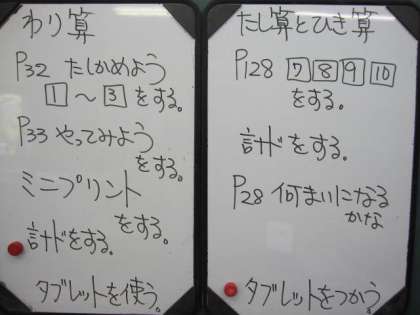 わり算
P32 たしかめよう
1 〜 3 をする。
P33 やってみよう
をする。
ミニプリント
をする。
計ドをする。
タブレットを使う。
たし算とひき算
P128 7 8 9 10
をする。
計ドをする。
P28 何まいになる
かな
タブレットをつかう。